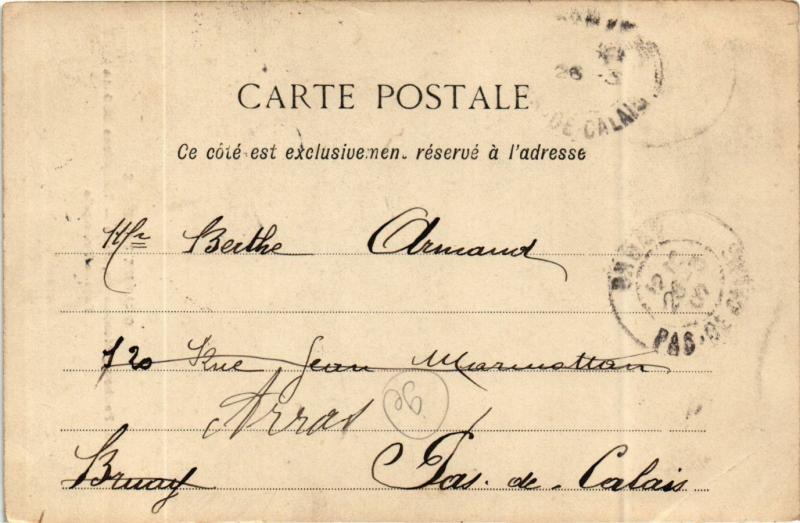 CARTE POSTALE
Ce côté est exclusivement réservé à l'adresse
Berthe Armand
120 Rue Jean Marmottan
Arras
Bruay Pas-de-Calais
DE CALAIS
PAS-DE-CA